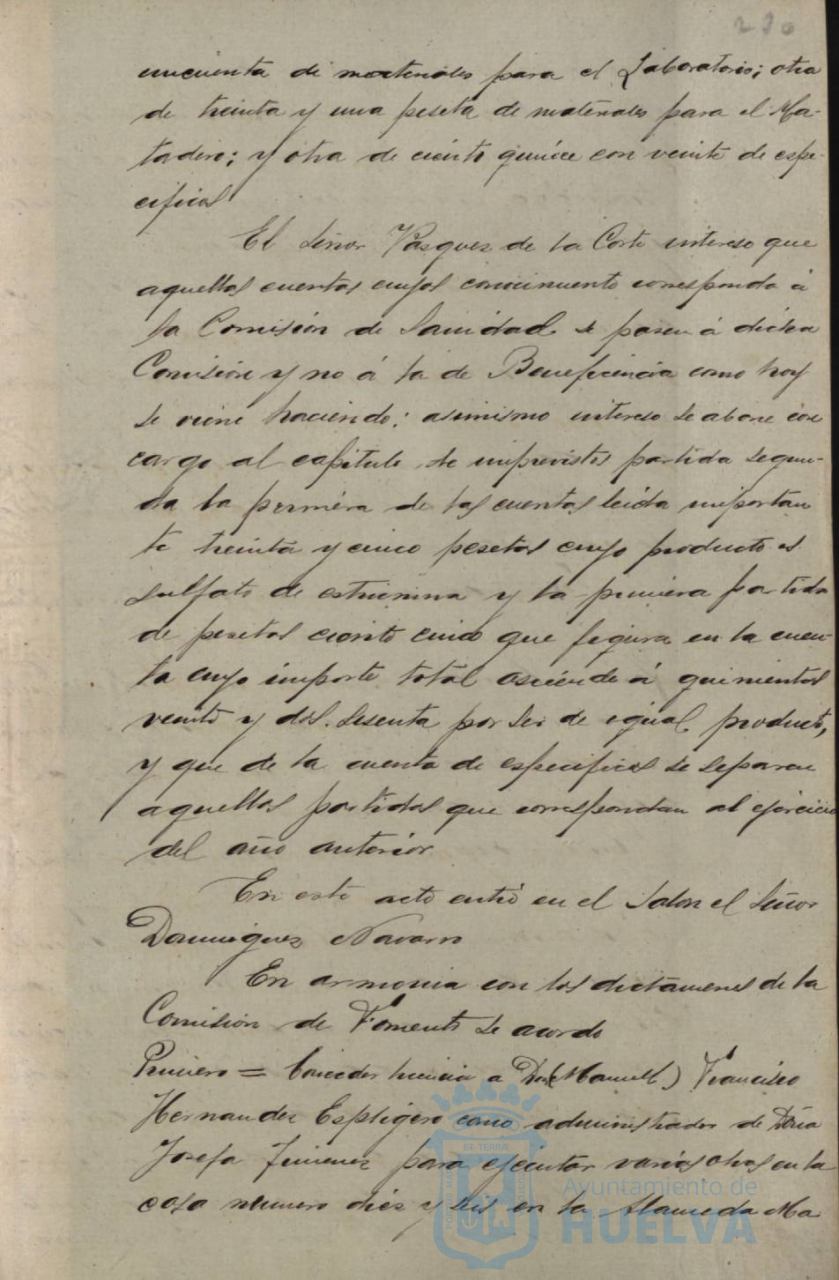 230
cincuenta de materiales para el Laboratorio; otra
de treinta y una peseta de materiales para el Ma-
tadero; y otra de ciento quince con veinte de espe-
cificos
El Señor Vasquez de la Corte intereso que
aquellas cuentas cuyos conocimiento corresponda á
la Comisión de Sanidad se pasen á dicha
Comisión y no á la de Beneficencia como hoy
se viene haciendo; asimismo intereso se abone con
cargo al capitulo de imprevistos partida segun-
da la primera de las cuentas leida importan
te treinta y cinco pesetas cuyo producto es
sulfato de estricnina y la primera partida
de pesetas ciento cinco que figura en la cuen-
ta cuyo importe total asciende á quinientas
veinte y dos sesenta por ser de igual producto,
y que de la cuenta de especificos se separen
aquellas partidas que correspondan al ejercicio
del año anterior
En este acto entró en el Salon el Señor
Dominguez Navarro
En armonia con los dictamenes de la
Comisión de Fomento se acordo
Primero = Conceder licencia a Don (Manuel) Francisco
Hernandez Espligero como administrador de Doña
Josefa Jimenez para ejecutar varias obras en la
casa número diez y seis en la Alameda Ma
Ayuntamiento de
HUELVA